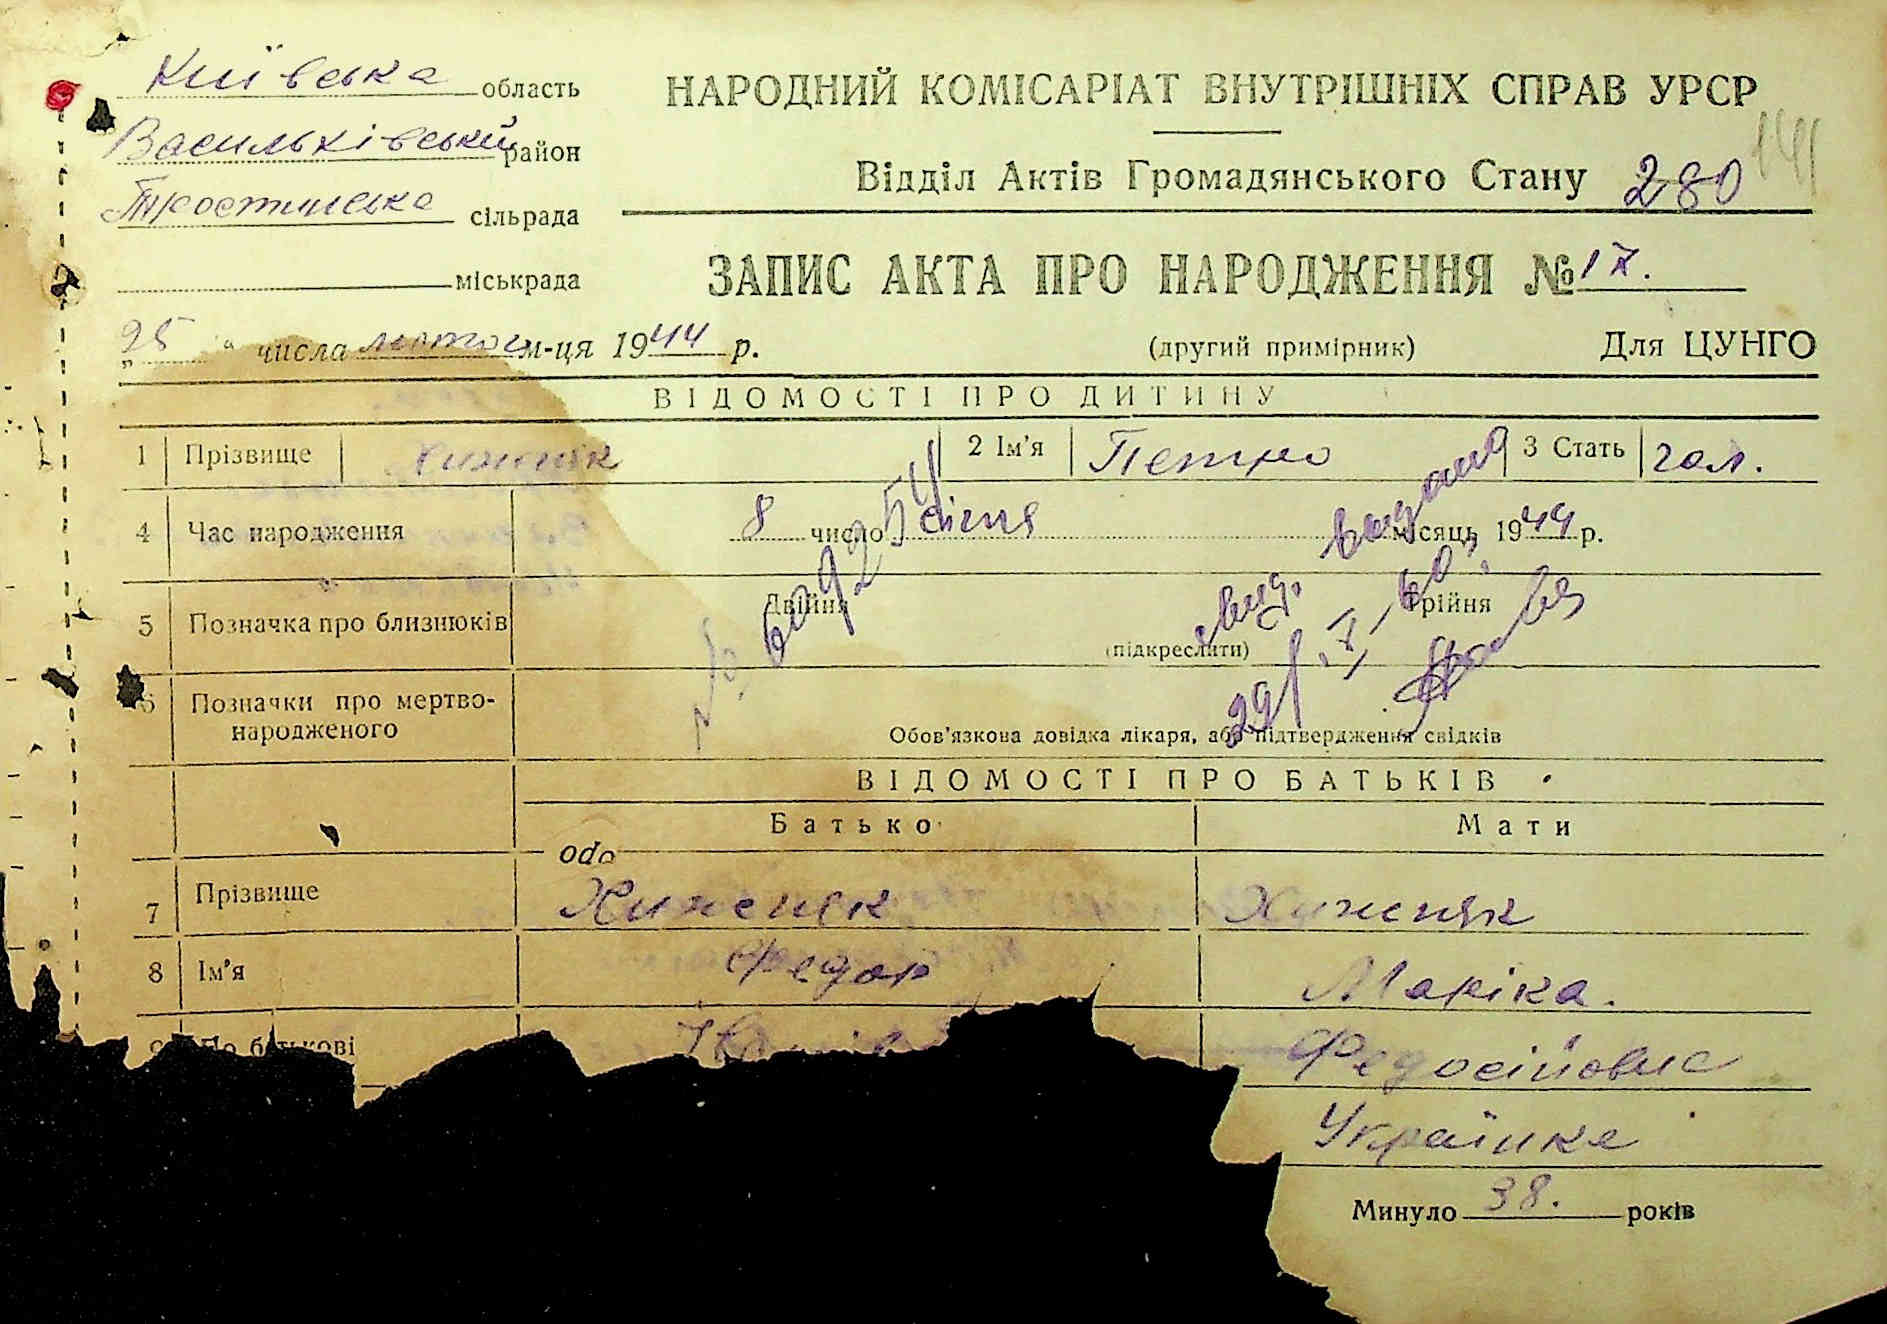 Київська область
Васильківський район
Тростинська сільрада
міськрада
НАРОДНИЙ КОМІСАРІАТ ВНУТРІШНІХ СПРАВ УРСР
141
Відділ Актів Громадянського Стану 280
ЗАПИС АКТА ПРО НАРОДЖЕННЯ № 17.
„25" числа лютого м-ця 1944 р.
(другий примірник) Для ЦУНГО
ВІДОМОСТІ ПРО ДИТИНУ
1 Прізвище Хиженяк 2 Ім'я Петро 3 Стать чол.
4 Час народження 8 число січня місяць 1944 р.
5 Позначка про близнюків Двійня Трійня
(підкреслити)
6 Позначки про мертво-
народженого
Обов'язкова довідка лікаря, або підтвердження свідків
видана
ВІДОМОСТІ ПРО БАТЬКІВ
Батько Мати
7 Прізвище Хиженяк Хиженяк
8 Ім'я Федор Маріка.
9 По батькові Федосіївна
Українка
Минуло 38. років